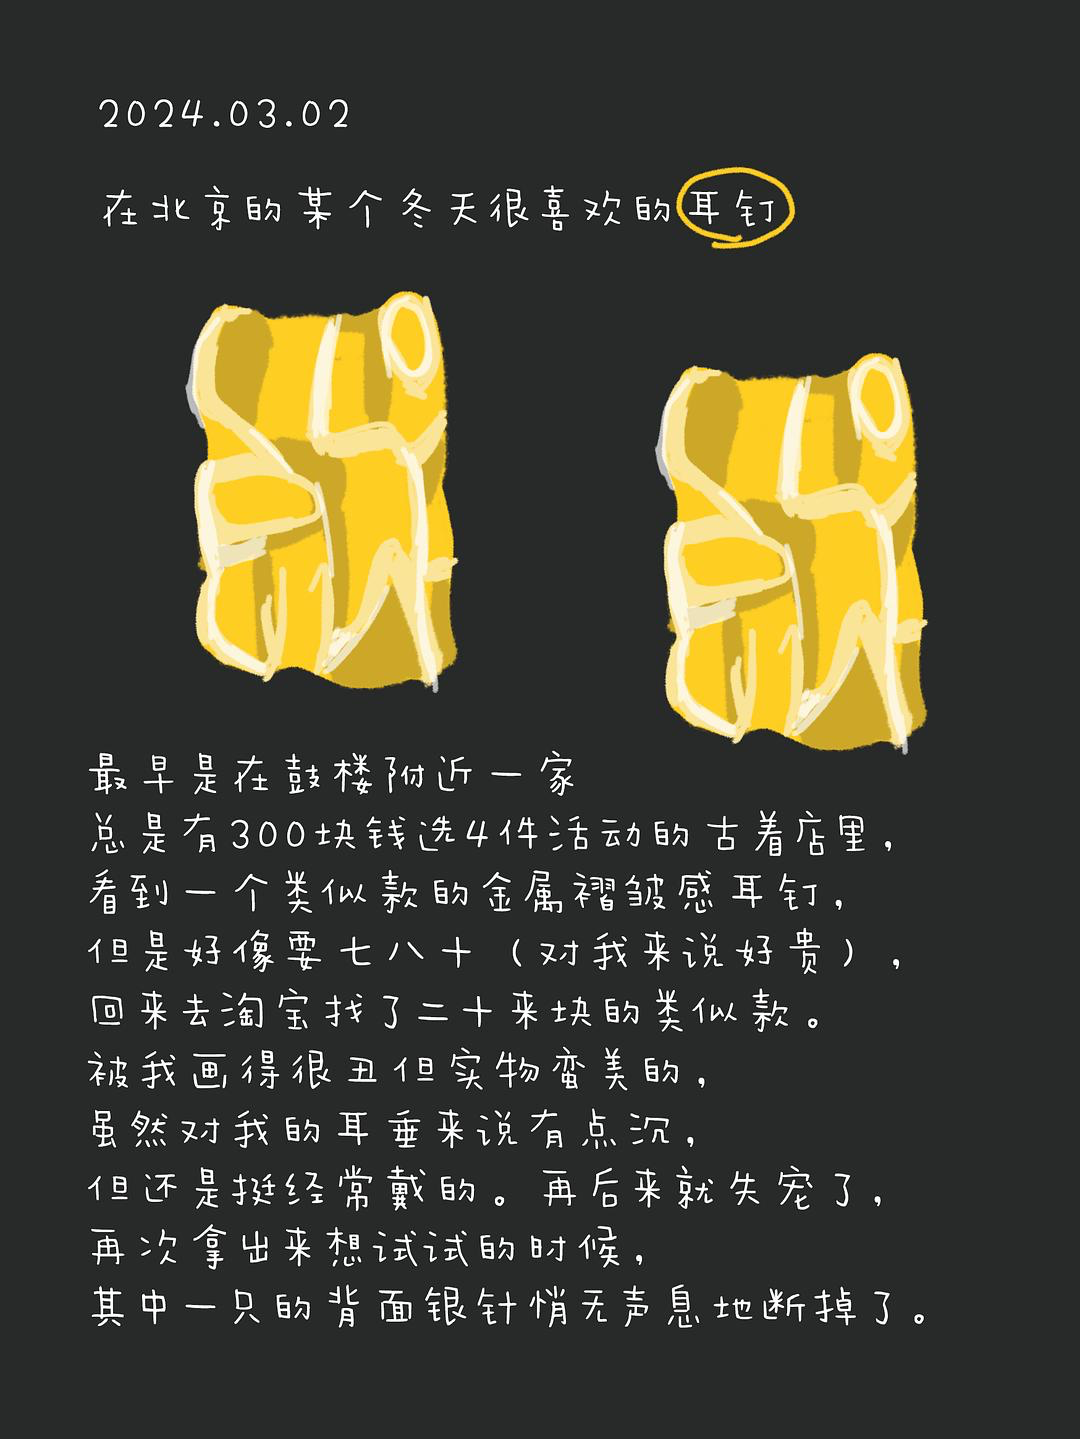 2024.03.02
在北京的某个冬天很喜欢的耳钉
最早是在鼓楼附近一家
总是有300块钱选4件活动的古着店里，
看到一个类似款的金属褶皱感耳钉，
但是好像要七八十（对我来说好贵），
回来去淘宝找了二十来块的类似款。
被我画得很丑但实物蛮美的，
虽然对我的耳垂来说有点沉，
但还是挺经常戴的。再后来就失宠了，
再次拿出来想试试的时候，
其中一只的背面银针悄无声息地断掉了。